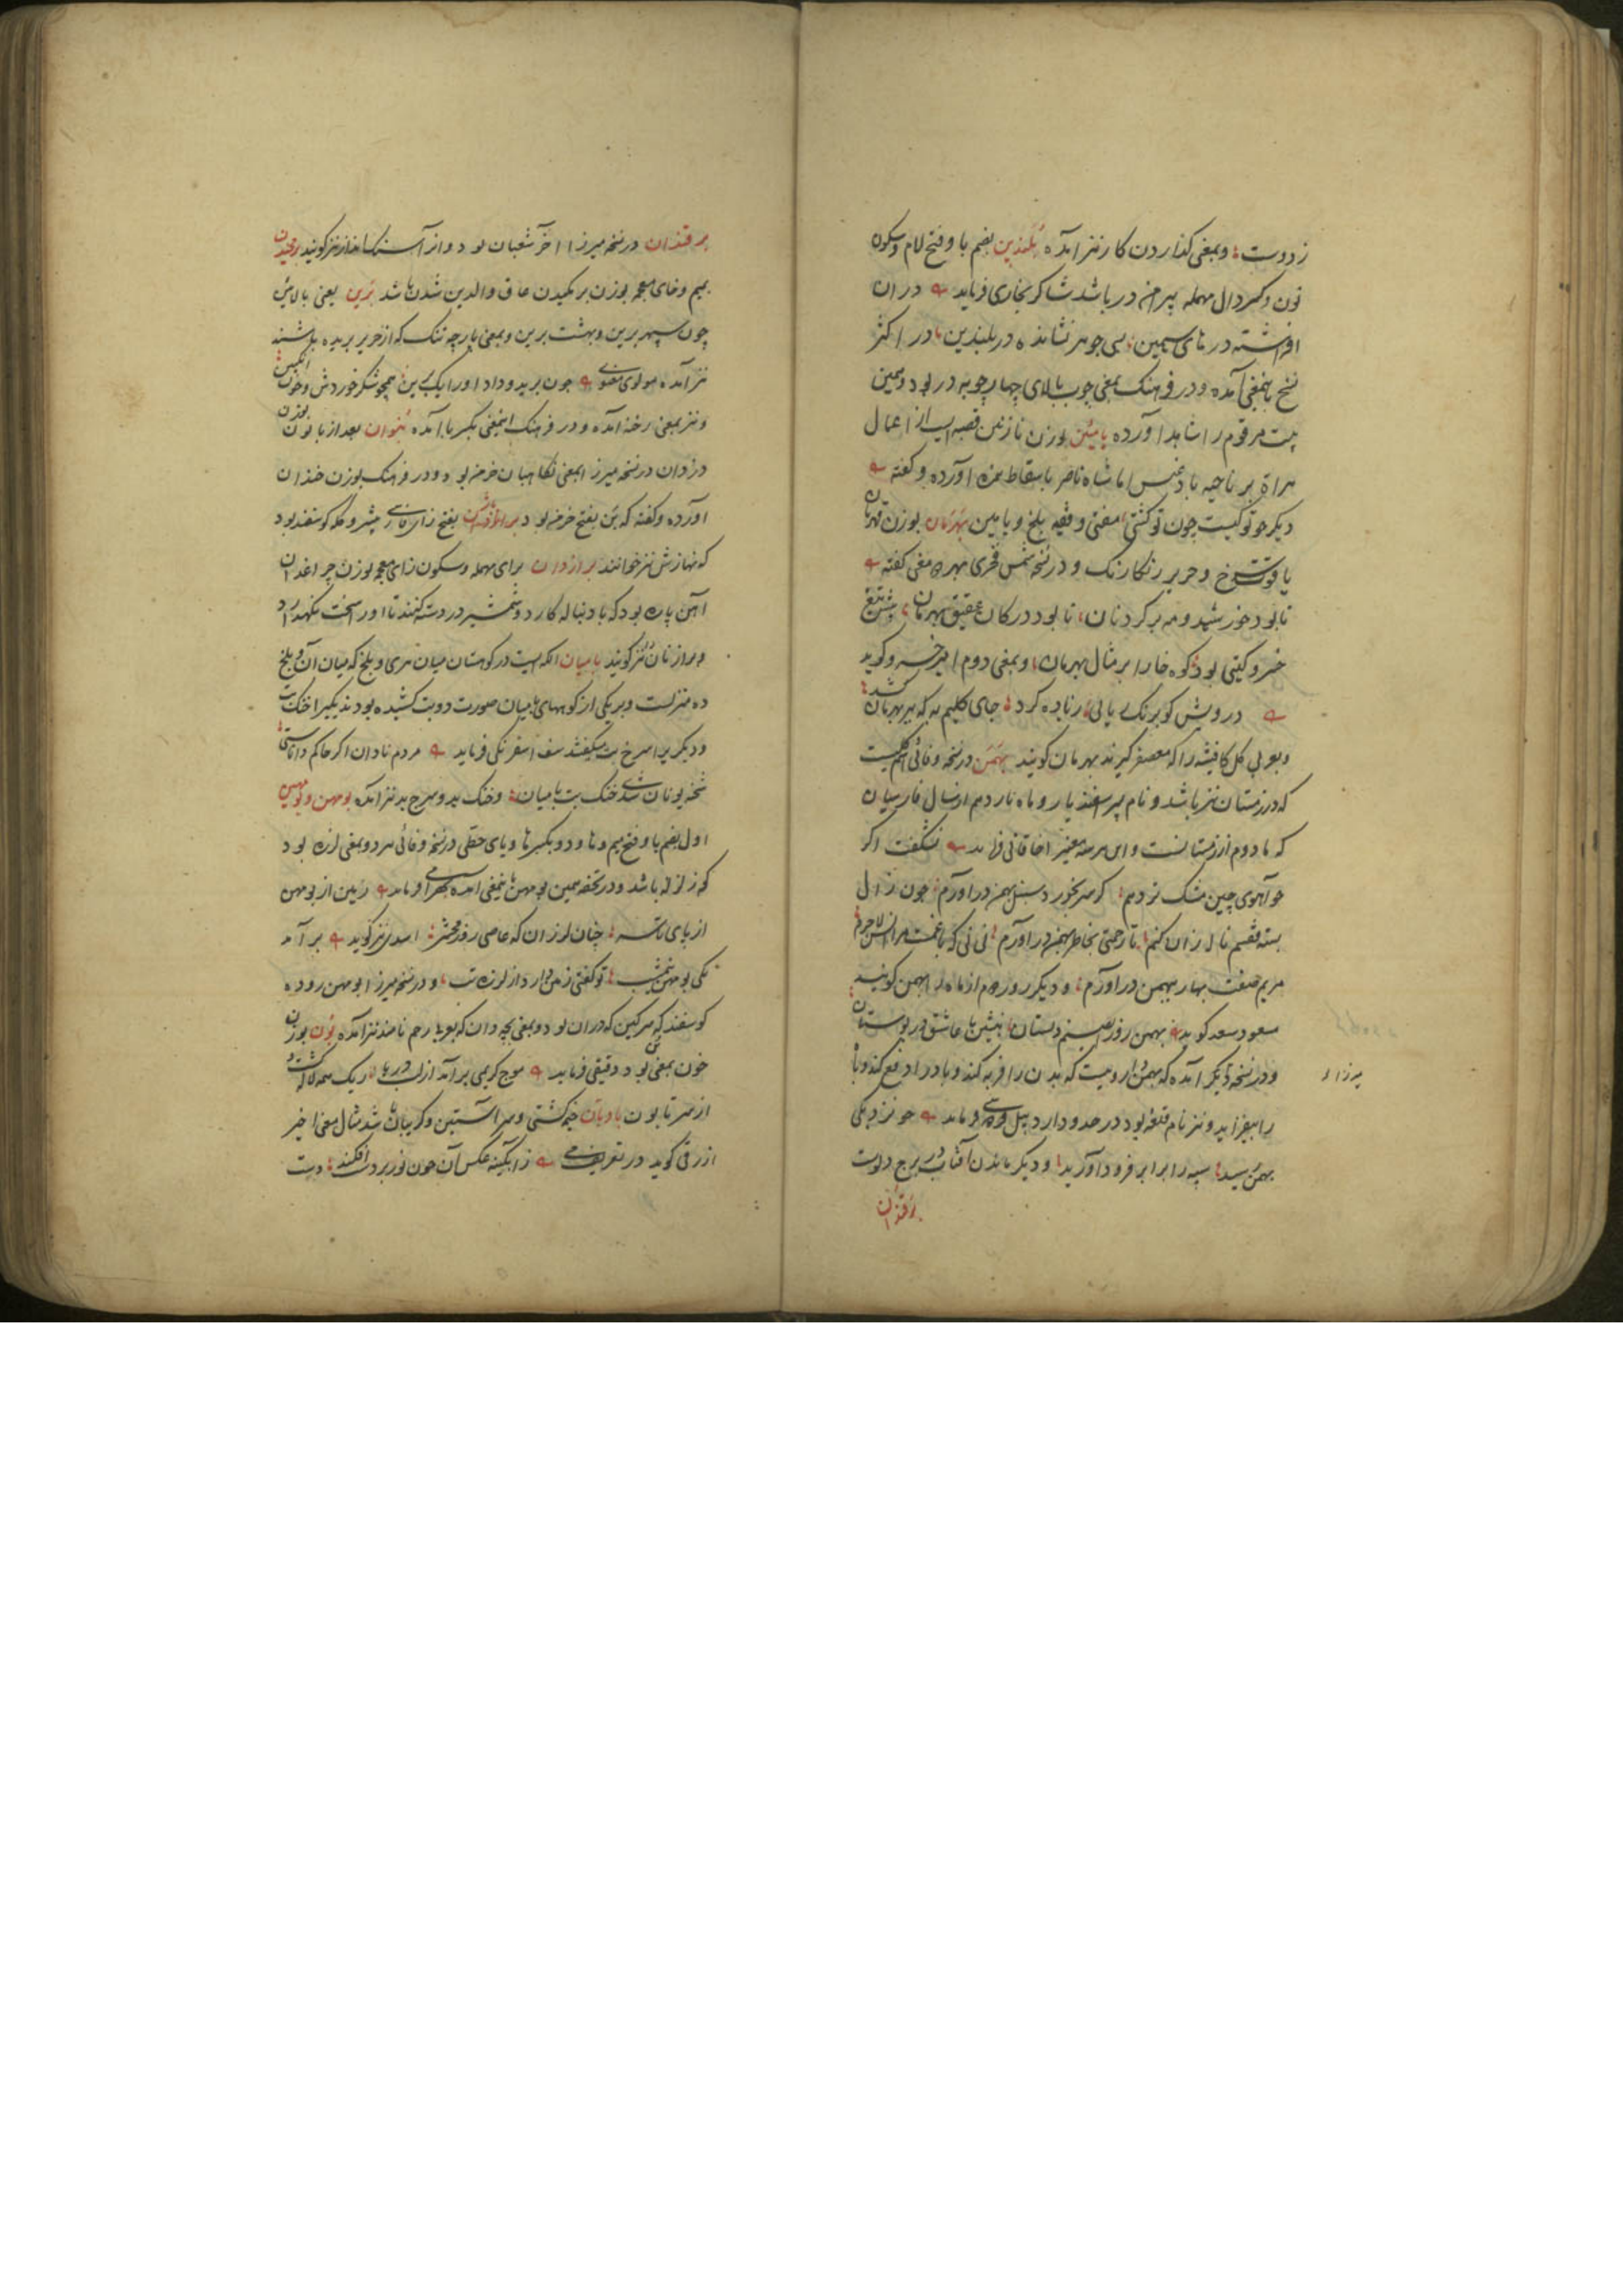 زدوست؛ و بمعنی گذاردن کار نیز آمده بلندین بضم با و فتح لام و سکون
نون و کسر دال مهمله پیرامن در باشد شاکر بخاری فرماید در ان
افراشته درهای سیمین بسی جوهر نشانده در بلندین در اکثر
نسخ باینمعنی آمده و در فرهنگ بمعنی چوب بالای چهارچوبه در بود و همین
بیت مرقوم را شاهد آورده بامئین بوزن نازنین قصبه ایست از اعمال
هراة بر ناحیه بادغیس اما شاه ناصر باسقاط همزه آورده و گفته
دیگر جو تو کیست چون تو گشتی مفتی و فقیه بلخ و بامین بهرمان بوزن قهرمان
یاقوت سرخ و حریر رنگارنگ و در نسخه شمس فخری بهر دو معنی گفته
تا بود خورشید و مه بر گردنان، تا بود در کان عقیق بهرمان، پیش تیغ
خسرو گیتی بود کوه خارا بر مثال بهرمان، و بمعنی دوم امیر خسرو گوید
درویش کو برنگ یائی رنابده کرد جای گلیم به که ببر بهرمان کشد
و بعربی گل کافیشه را که معصفر گیرند بهرمان گویند بهمن در نسخه وفائی اسم گلیست
که در زمستان نیز باشد و نام پسر اسفندیار و ماه یازدهم از سال فارسیان
که ماه دوم از زمستانست و این هر سه معنی را خاقانی فرماید نشگفت اگر
چو آهوی چین مشک بر دهم؛ کز سر بخورد سنبل بهمن درآورم؛ چون زال
بسته قفسم ناله زان کنم تا رحمتی بخاطر بهمن درآورم نی نی که با غمست مرا انس لاجرم
مریم صفت بهار ببهمن درآورم؛ و دیگر روز دوم از ماه را بهمن گویند
مسعود سعد گوید بهمن روز ای صنم دلستان بنشین با عاشق در بوستان
و در نسخه دیگر آمده که بهمن داروئیست که بدن را فربه کند و باد را دفع کند و باه
را بیفزاید و نیز نام قلعه بود در حدود اردبیل فردوسی فرماید چو نزدیکی
بهمن رسید؛ سپه را برابر فرود آورید؛ و دیگر ماندن آفتاب در برج دلوست
برقندان
برقندان در نسخه میرزا آخر شعبان بود و از آن سنگ انداز نیز گویند برمخیدن
بمیم و خای معجمه بوزن برمکیدن عاق والدین شدن باشد برین یعنی بالائین
چون سپهر برین و بهشت برین و بمعنی پارچه تنک که از خربزه بریده باشند
نیز آمده مولوی معنوی چون برید و داد او را یک برین همچو شکر خوردش و چون انگبین
و نیز بمعنی رخنه آمده و در فرهنگ اینمعنی بکسر با آمده بنوان بعد از با نون بوزن
دزدان در نسخه میرزا بمعنی نگاهبان خرمن بود و در فرهنگ بوزن خندان
آورده و گفته که بن بفتح خرمن بود بفتح زای فارسی پیشرو گله گوسفند بود
که نهازش نیز خوانند برازوان برای مهمله و سکون زای معجمه بوزن چراغدان
آهن پاره بود که با دنباله کارد و شمشیر در دسته کنند تا او را سخت نگهدارد
و برازبان نیز گویند بامیان الکه ایست در کوهستان میان هری و بلخ که میان آن و بلخ
ده منزلست و بر یکی از کوههای بامیان صورت دو بت کشیده بودند یکی را خنگ بت
و دیگری را سرخ بت میگفتند سیف اسفرنگی فرماید مردم نادان اگر حاکم داناستی
شحنه یونان شدی خنگ بت بامیان؛ و خنگ بد و سرخ بد نیز آمده بومهن و بومهین
اول بضم با و فتح میم و ها و دو بکسر ها و یای حطی در نسخه وفائی هر دو بمعنی لرزه بود
که زلزله باشد و در تحفه همین بومهن باینمعنی آمده بهرامی فرماید زمین از بومهن
از پای تا سر؛ چنان لرزان که عاصی روز محشر؛ اسدی نیز گوید برآمد
یکی بومهن نیمشب؛ تو گفتی زمین دارد از لرزه تب، و در نسخه میرزا بومهن روده
گوسفند که سرگین که در ان بود و بمعنی بچه دان که بعربی رحم نامند نیز آمده بون بوزن
خون بمعنی بن بود دقیقی فرماید موج کریمی برآمد از لب دریا ریک همه لاله گشت
از سر تا بون بادبان خیمه کشتی و سر آستین و گریبان باشد مثال معنی اخیر
ازرقی گوید در تعریف می ز آبگینه عکس آن چون نور بر دست افکند؛ دست